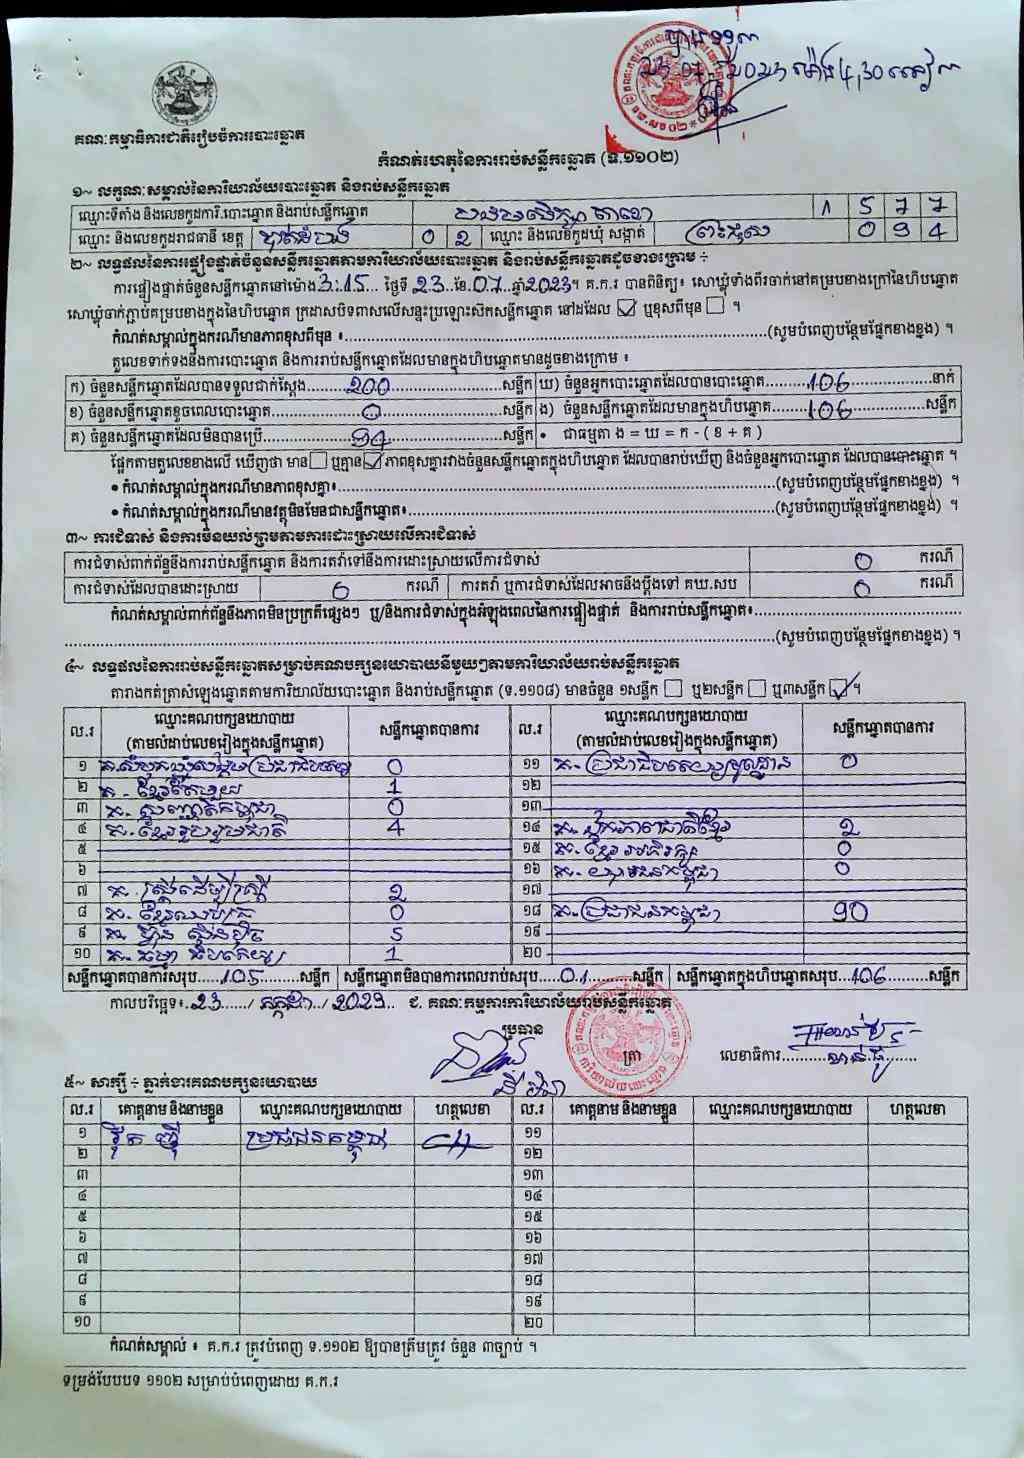 គណៈកម្មាធិការជាតិរៀបចំការបោះឆ្នោត
២០២៣ ម៉ោង 4,30
កំណត់ហេតុនៃការរាប់សន្លឹកឆ្នោត (ទ.១១០២)
១~ លក្ខណៈសម្គាល់នៃការិយាល័យបោះឆ្នោត និងរាប់សន្លឹកឆ្នោត
ឈ្មោះទីតាំង និងលេខកូដការិ.បោះឆ្នោត និងរាប់សន្លឹកឆ្នោត 1 5 7 7
ឈ្មោះ និងលេខកូដរាជធានី ខេត្ត បាត់ដំបង 0 2 ឈ្មោះ និងលេខកូដឃុំ សង្កាត់ 0 9 4
២~ លទ្ធផលនៃការផ្ទៀងផ្ទាត់ចំនួនសន្លឹកឆ្នោតតាមការិយាល័យបោះឆ្នោត និងរាប់សន្លឹកឆ្នោតដូចខាងក្រោម ÷
ការផ្ទៀងផ្ទាត់ចំនួនសន្លឹកឆ្នោតនៅម៉ោង 3:15 ថ្ងៃទី 23 ខែ 07 ឆ្នាំ 2023។ គ.ក.រ បានពិនិត្យ៖ សោឃ្លុំទាំងពីរចាក់នៅគម្របខាងក្រៅនៃហិបឆ្នោត
សោឃ្លុំចាក់ភ្ជាប់គម្របខាងក្នុងនៃហិបឆ្នោត ក្រដាសបិទពាសលើសន្ទះប្រឡោះស៊កសន្លឹកឆ្នោត នៅដដែល ☑ ឬខុសពីមុន ☐ ។
កំណត់សម្គាល់ក្នុងករណីមានភាពខុសពីមុន ៖ (សូមបំពេញបន្ថែមផ្នែកខាងខ្នង) ។
តួលេខទាក់ទងនឹងការបោះឆ្នោត និងការរាប់សន្លឹកឆ្នោតដែលមានក្នុងហិបឆ្នោតមានដូចខាងក្រោម ៖
ក) ចំនួនសន្លឹកឆ្នោតដែលបានទទួលជាក់ស្ដែង 200 សន្លឹក ឃ) ចំនួនអ្នកបោះឆ្នោតដែលបានបោះឆ្នោត 106 នាក់
ខ) ចំនួនសន្លឹកឆ្នោតខូចពេលបោះឆ្នោត 0 សន្លឹក ង) ចំនួនសន្លឹកឆ្នោតដែលមានក្នុងហិបឆ្នោត 106 សន្លឹក
គ) ចំនួនសន្លឹកឆ្នោតដែលមិនបានប្រើ 94 សន្លឹក • ជាធម្មតា ង = ឃ = ក - ( ខ + គ )
ផ្អែកតាមតួលេខខាងលើ ឃើញថា មាន ☐ ឬគ្មាន ☑ ភាពខុសគ្នារវាងចំនួនសន្លឹកឆ្នោតក្នុងហិបឆ្នោត ដែលបានរាប់ឃើញ និងចំនួនអ្នកបោះឆ្នោត ដែលបានបោះឆ្នោត ។
• កំណត់សម្គាល់ក្នុងករណីមានភាពខុសគ្នា៖ (សូមបំពេញបន្ថែមផ្នែកខាងខ្នង) ។
• កំណត់សម្គាល់ក្នុងករណីមានវត្ថុមិនមែនជាសន្លឹកឆ្នោត៖ (សូមបំពេញបន្ថែមផ្នែកខាងខ្នង) ។
៣~ ការជំទាស់ និងការមិនយល់ព្រមតាមការដោះស្រាយលើការជំទាស់
ការជំទាស់ពាក់ព័ន្ធនឹងការរាប់សន្លឹកឆ្នោត និងការតវ៉ាទៅនឹងការដោះស្រាយលើការជំទាស់ 0 ករណី
ការជំទាស់ដែលបានដោះស្រាយ 0 ករណី ការតវ៉ា ឬការជំទាស់ដែលអាចនឹងប្ដឹងទៅ គឃ.សប 0 ករណី
កំណត់សម្គាល់ពាក់ព័ន្ធនឹងភាពមិនប្រក្រតីផ្សេងៗ ឬ/និងការជំទាស់ក្នុងអំឡុងពេលនៃការផ្ទៀងផ្ទាត់ និងការរាប់សន្លឹកឆ្នោត៖
(សូមបំពេញបន្ថែមផ្នែកខាងខ្នង) ។
៤~ លទ្ធផលនៃការរាប់សន្លឹកឆ្នោតសម្រាប់គណបក្សនយោបាយនីមួយៗតាមការិយាល័យរាប់សន្លឹកឆ្នោត
តារាងកត់ត្រាសំឡេងឆ្នោតតាមការិយាល័យបោះឆ្នោត និងរាប់សន្លឹកឆ្នោត (ទ.១១០៨) មានចំនួន ១សន្លឹក ☐ ឬ២សន្លឹក ☐ ឬ៣សន្លឹក ☑ ។
ល.រ ឈ្មោះគណបក្សនយោបាយ (តាមលំដាប់លេខរៀងក្នុងសន្លឹកឆ្នោត) សន្លឹកឆ្នោតបានការ ល.រ ឈ្មោះគណបក្សនយោបាយ (តាមលំដាប់លេខរៀងក្នុងសន្លឹកឆ្នោត) សន្លឹកឆ្នោតបានការ
១ គ.សំបុកឃ្មុំសង្គមប្រជាធិបតេយ្យ 0 ១១ គ. ប្រជាធិបតេយ្យមូលដ្ឋាន 0
២ គ. ខ្មែរតែមួយ 1 ១២
៣ គ. កម្ពុជា 0 ១៣
៤ គ. ខ្មែររួបរួមជាតិ 4 ១៤ គ. 2
៥ ១៥ គ. ខ្មែរអភិរក្ស 0
៦ ១៦ គ. យុវជនកម្ពុជា 0
៧ គ. ស្ត្រីដើម្បីស្ត្រី 2 ១៧
៨ គ. ខ្មែរឈប់ក្រ 0 ១៨ គ. ប្រជាជនកម្ពុជា 90
៩ គ. ហ្វ៊ុនស៊ិនប៉ិច 5 ១៩
១០ គ. ធម្មាធិបតេយ្យ 1 ២០
សន្លឹកឆ្នោតបានការសរុប 105 សន្លឹក សន្លឹកឆ្នោតមិនបានការពេលរាប់សរុប 01 សន្លឹក សន្លឹកឆ្នោតក្នុងហិបឆ្នោតសរុប 106 សន្លឹក
កាលបរិច្ឆេទ៖ 23 / កក្កដា / 2023 ជ. គណៈកម្មការការិយាល័យរាប់សន្លឹកឆ្នោត
ប្រធាន
ត្រា លេខាធិការ
៥~ សាក្សី ÷ ភ្នាក់ងារគណបក្សនយោបាយ
ល.រ គោត្តនាម និងនាមខ្លួន ឈ្មោះគណបក្សនយោបាយ ហត្ថលេខា ល.រ គោត្តនាម និងនាមខ្លួន ឈ្មោះគណបក្សនយោបាយ ហត្ថលេខា
១ ប្រជាជនកម្ពុជា ១១
២ ១២
៣ ១៣
៤ ១៤
៥ ១៥
៦ ១៦
៧ ១៧
៨ ១៨
៩ ១៩
១០ ២០
កំណត់សម្គាល់ ៖ គ.ក.រ ត្រូវបំពេញ ទ.១១០២ ឱ្យបានត្រឹមត្រូវ ចំនួន ៣ច្បាប់ ។
ទម្រង់បែបបទ ១១០២ សម្រាប់បំពេញដោយ គ.ក.រ